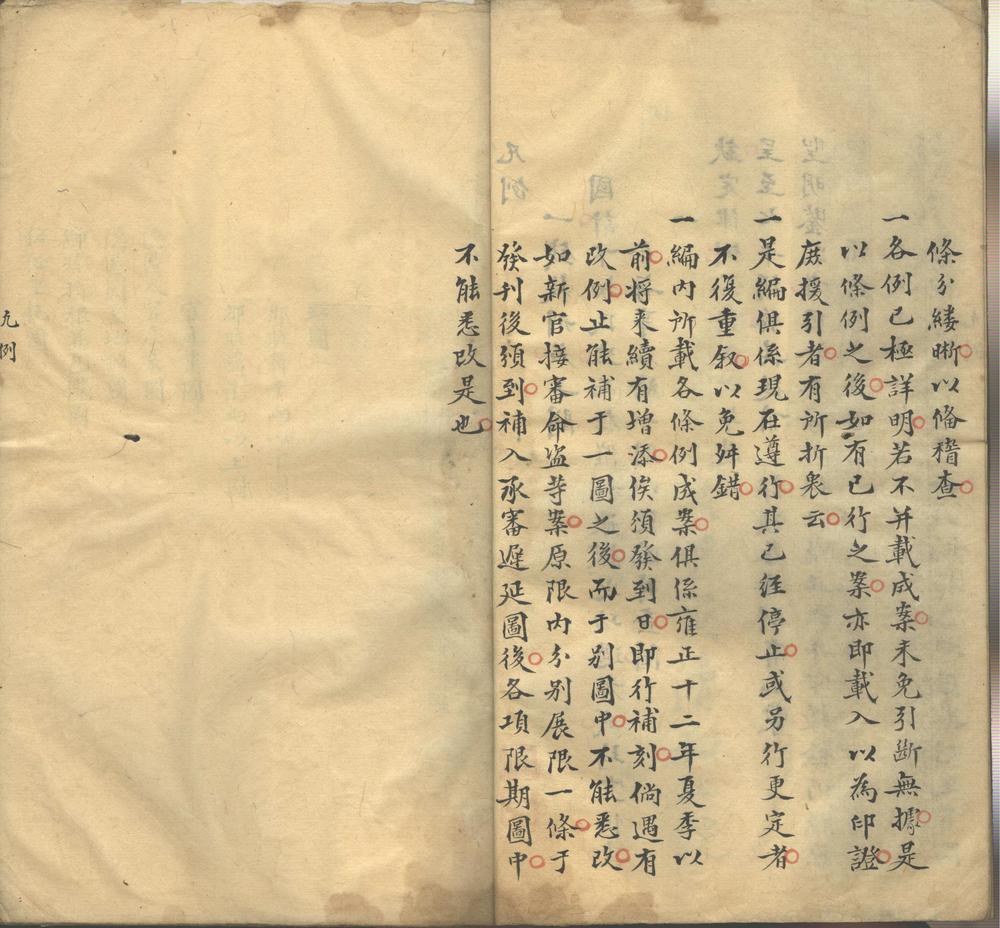 條分縷晰以俻稽查
一各例已極詳明若不并載成案未免引斷無據是
以條例之後如有已行之案亦即載入以為印證
庶援引者有所折衷云
一是編俱係現在遵行其已經停止或另行更定者
不復重叙以免舛錯
一編内所載各條例成案俱係雍正十二年夏季以
前將来續有增添俟頒發到日即行補刻倘遇有
改例止能補于一圖之後而于别圖中不能悉改
如新官接審命盗等案原限内分别展限一條于
發刊後頒到補入承審遲延圖後各項限期圖中
不能悉改是也
凡例